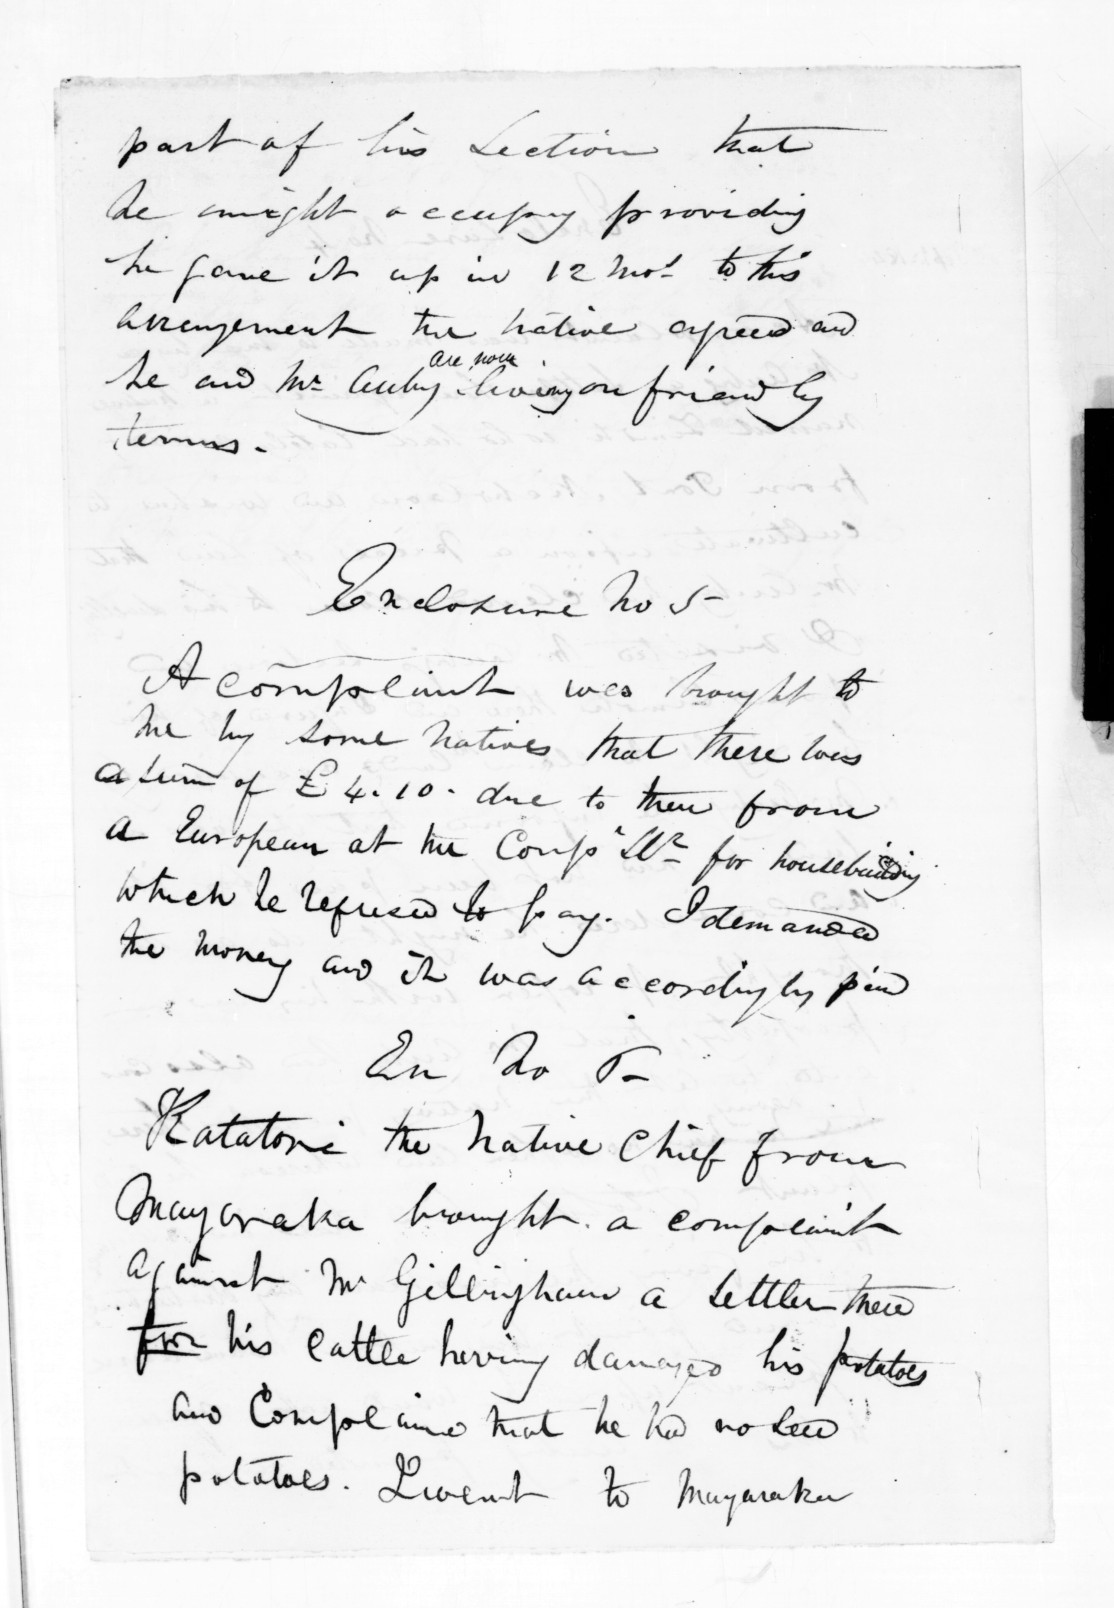 part of his Section that
he might occupy providing
he gave it up in 12 Mos to this
arrangement the Native agreed and
he and Mr are now living on friendly
terms.
Enclosure No 5
A complaint was brought to
me by some Natives that there was
a sum of £4.10. due to them from
a European at the Comps for housebuilding
which he refused to pay. I demanded
the money and it was accordingly paid
En No
Katatore the Native Chief from
Mangaraka brought a complaint
against Mr Gillingham a Settler there
for his Cattle having damaged his potatoes
and Complained that he had no Seed
potatoes. I went to Mangaraka